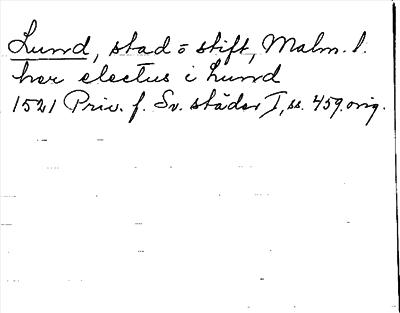 Lund, stad o stift, Malm. l.
her electus i Lund
1521 Priv. f. Sv. städer I, ss. 459. orig.